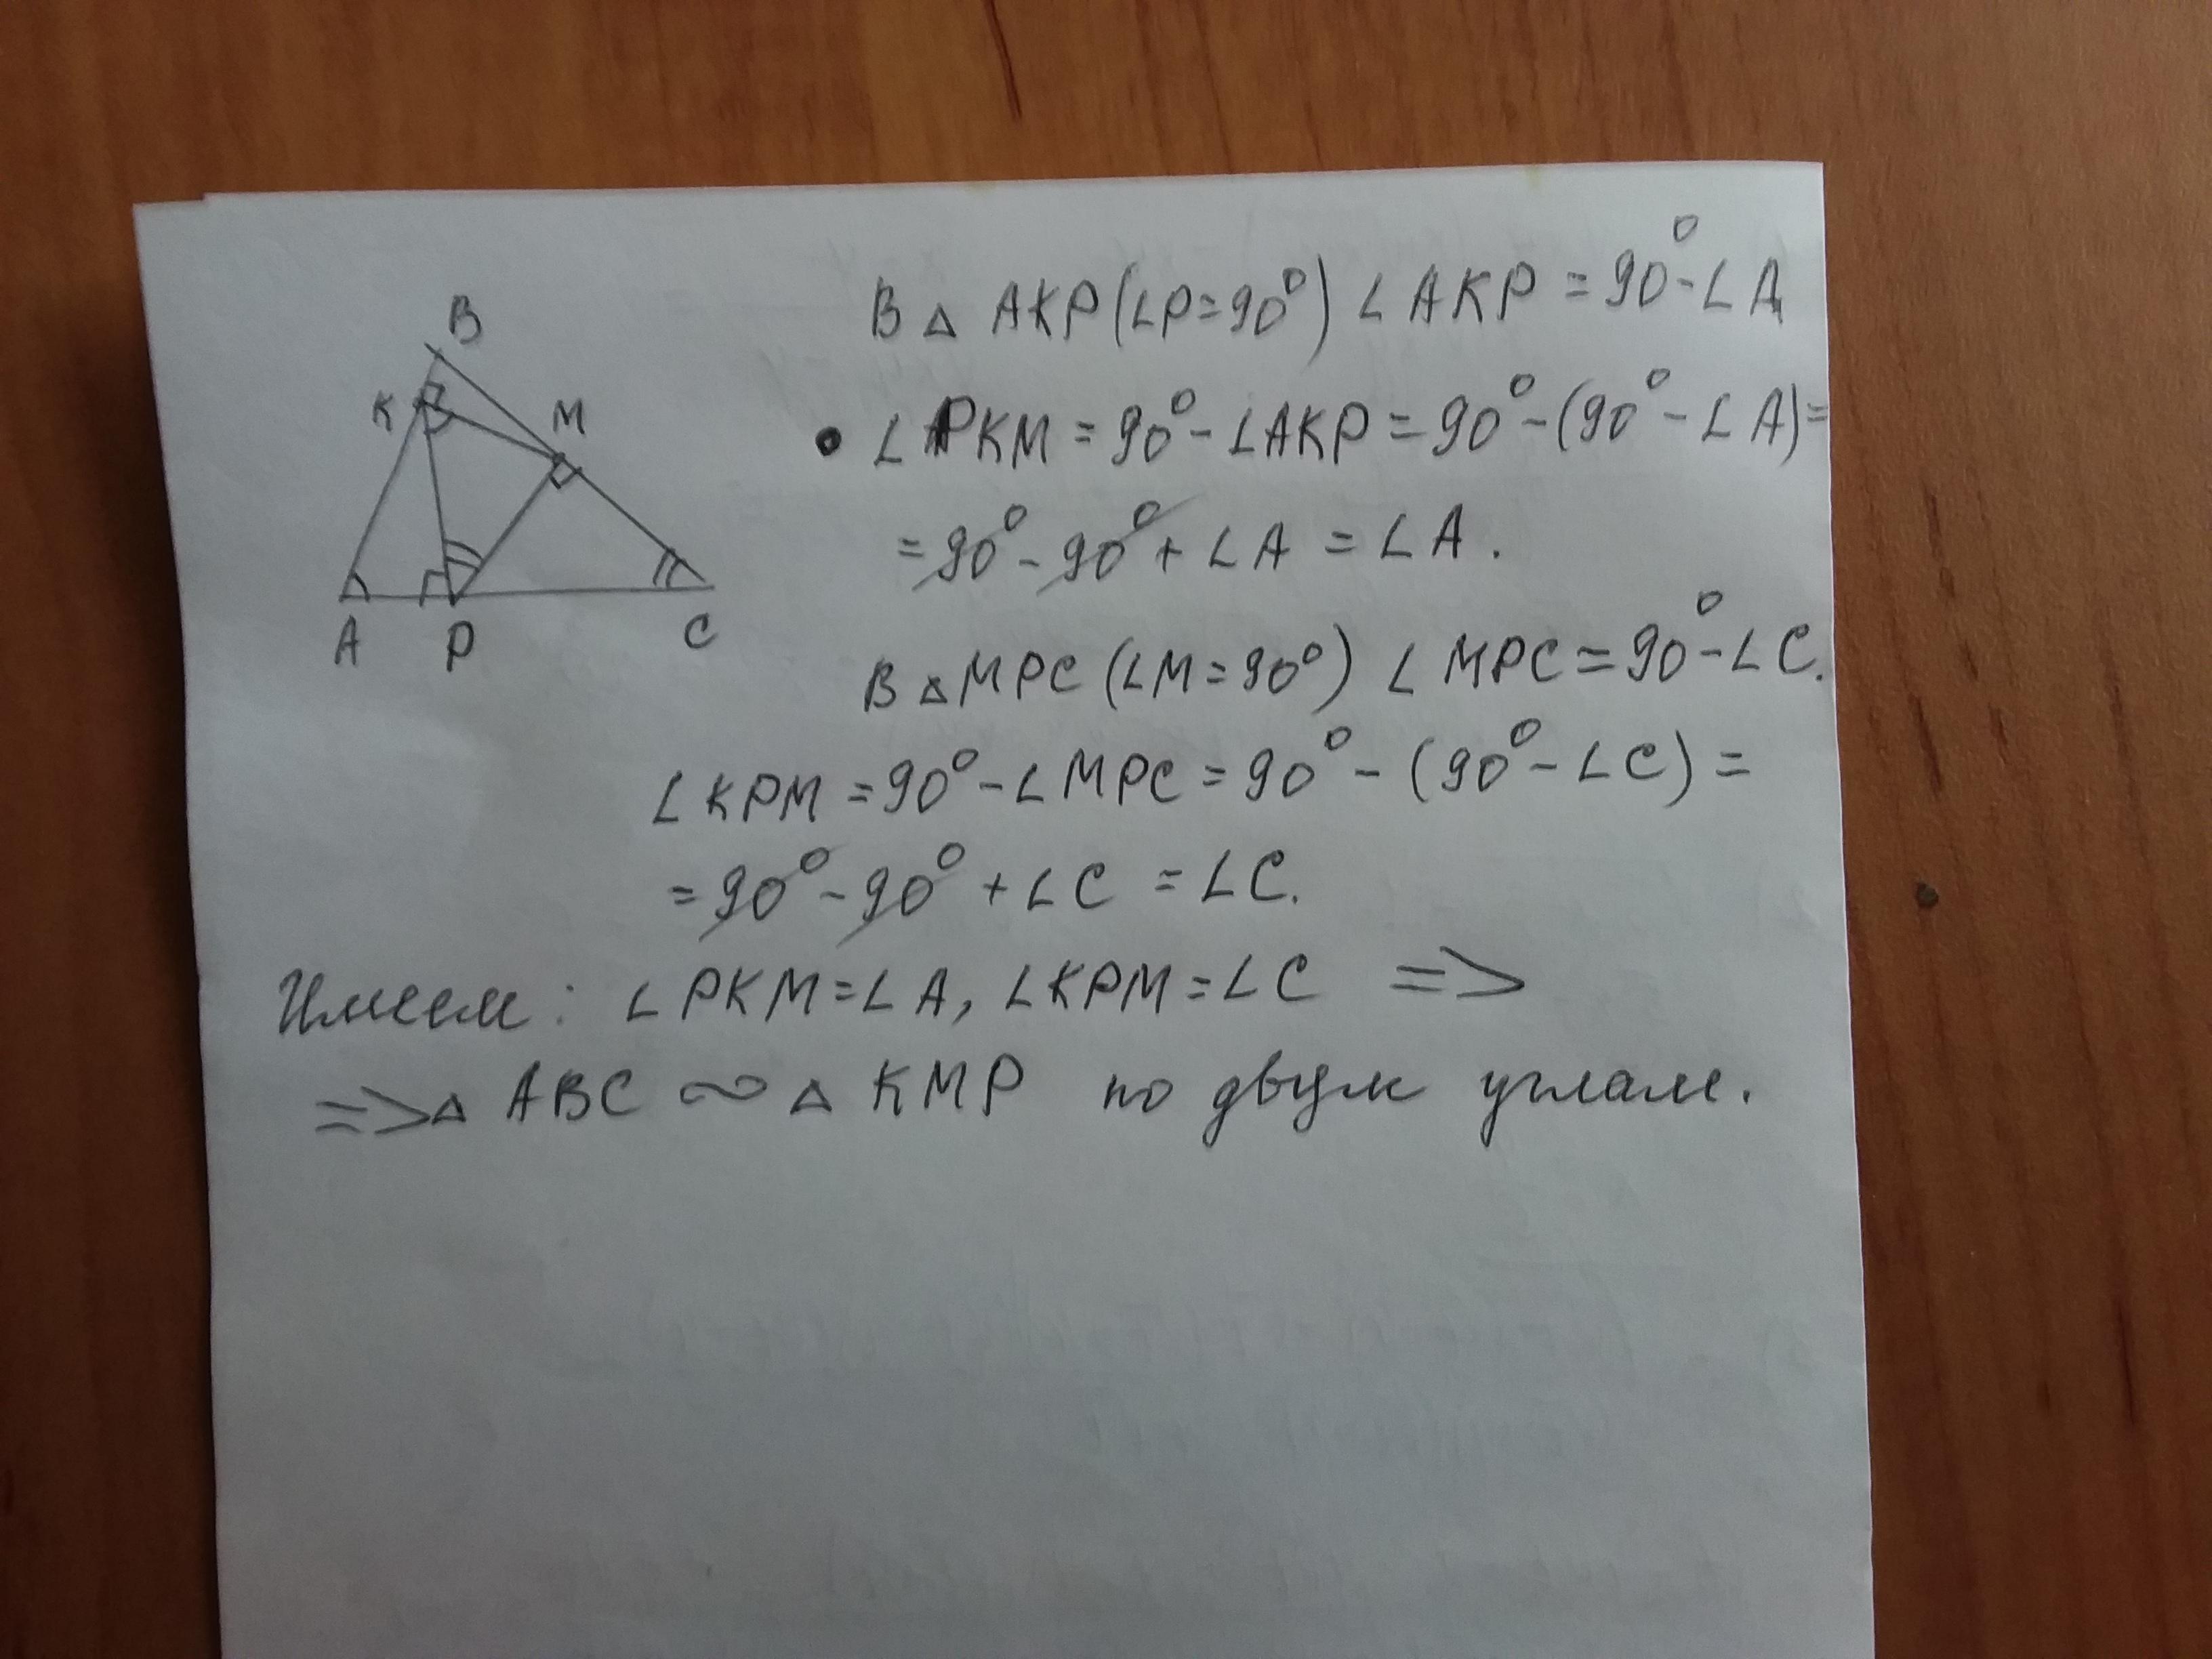 B
K
M
A
P
C
В △ AKP (∠P=90°) ∠AKP = 90°-∠A
• ∠PKM = 90°-∠AKP = 90°-(90°-∠A)=
= 90°-90°+∠A = ∠A.
В △MPC (∠M=90°) ∠MPC = 90°-∠C.
∠KPM = 90°-∠MPC = 90°-(90°-∠C)=
= 90°-90°+∠C = ∠C.
Имеем: ∠PKM=∠A, ∠KPM=∠C =>
=> △ ABC ∼ △ KMP по двум углам.